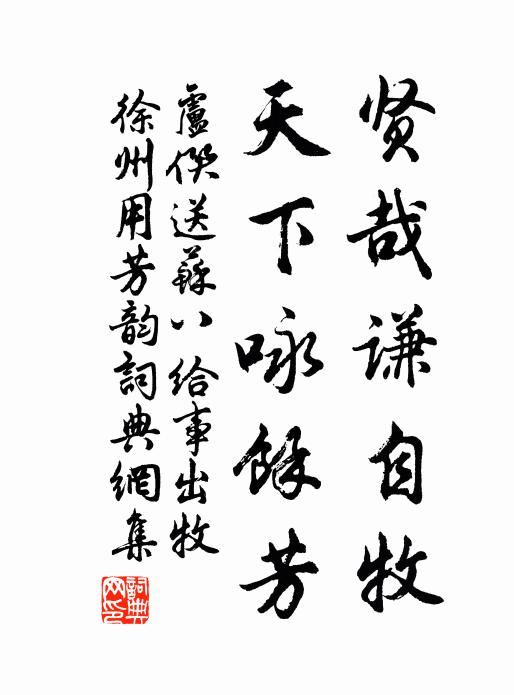 贤哉谦自牧
天下咏馀芳
盧僎送蘇八给事出牧
徐州用芳韵詞典網集
詞典网印